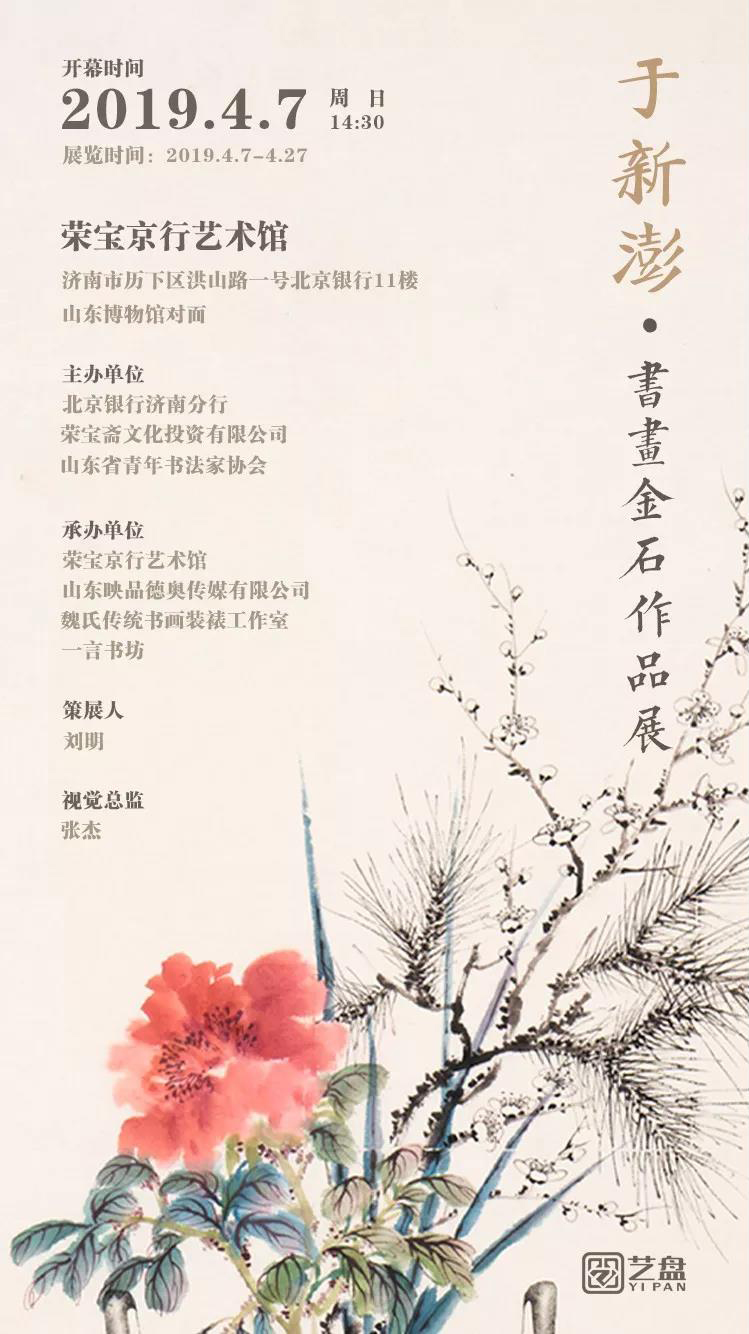 开幕时间
2019.4.7 周 日
14:30
展览时间：2019.4.7-4.27
荣宝京行艺术馆
济南市历下区洪山路一号北京银行11楼
山东博物馆对面
主办单位
北京银行济南分行
荣宝斋文化投资有限公司
山东省青年书法家协会
承办单位
荣宝京行艺术馆
山东映品德奥传媒有限公司
魏氏传统书画装裱工作室
一言书坊
策展人
刘明
视觉总监
张杰
于新澎·書畫金石作品展
艺盘
YI PAN